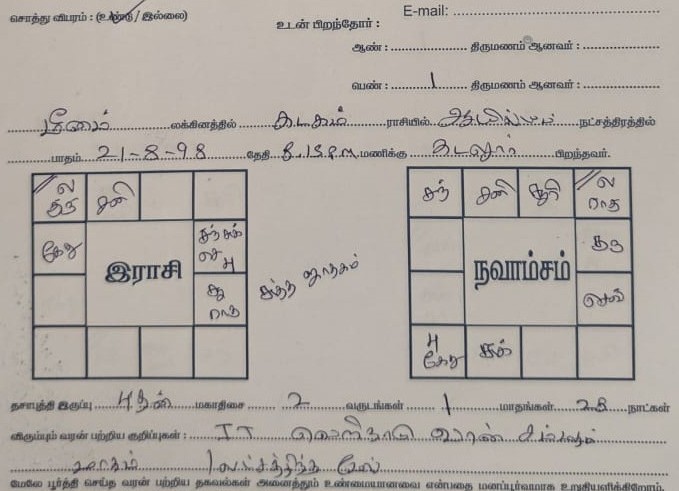 சொத்து விபரம் : (உண்டு / இல்லை)
E-mail:
உடன் பிறந்தோர் :
ஆண் : திருமணம் ஆனவர் :
பெண் : 1 திருமணம் ஆனவர் :
மீனம் லக்கினத்தில் கடகம் ராசியில் ஆயில்யம் நட்சத்திரத்தில்
பாதம் 21-8-98 தேதி 8.15 P.M மணிக்கு கடலூர் பிறந்தவர்.
ல சனி
குரு
கேது
சந் சுக்
செ பு
இராசி
சூ
ராகு
சுத்த ஜாதகம்
சந் சனி சூரி ல
ராகு
குரு
நவாம்சம்
செவ்
பு
கேது சுக்
தசாபுத்தி இருப்பு புதன் மகாதிசை 2 வருடங்கள் 1 மாதங்கள் 28 நாட்கள்
விரும்பும் வரன் பற்றிய குறிப்புகள் : IT வெளிநாடு வரன்
மாதம் 1 லட்சத்திற்கு மேல்
மேலே பூர்த்தி செய்த வரன் பற்றிய தகவல்கள் அனைத்தும் உண்மையானவை என்பதை மனப்பூர்வமாக உறுதியளிக்கிறோம்.